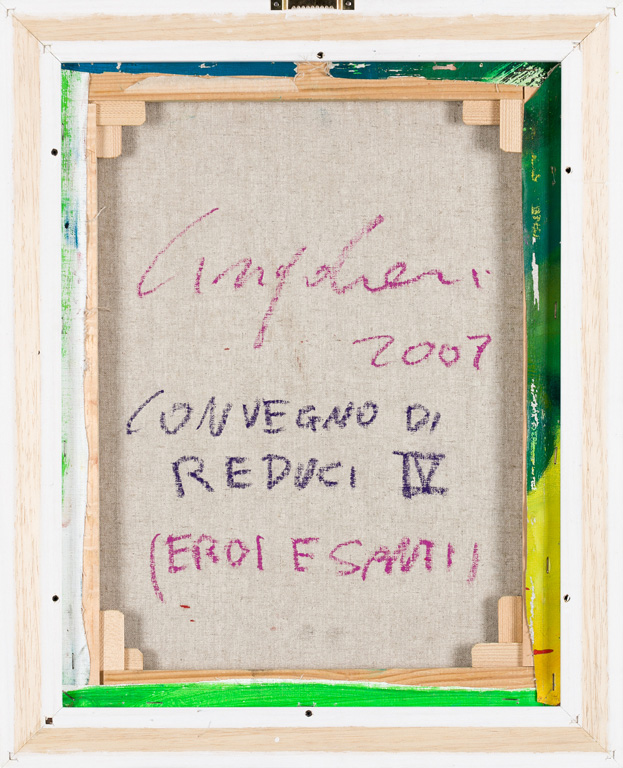 2007
CONVEGNO DI
REDUCI IV
(EROI E SANTI)